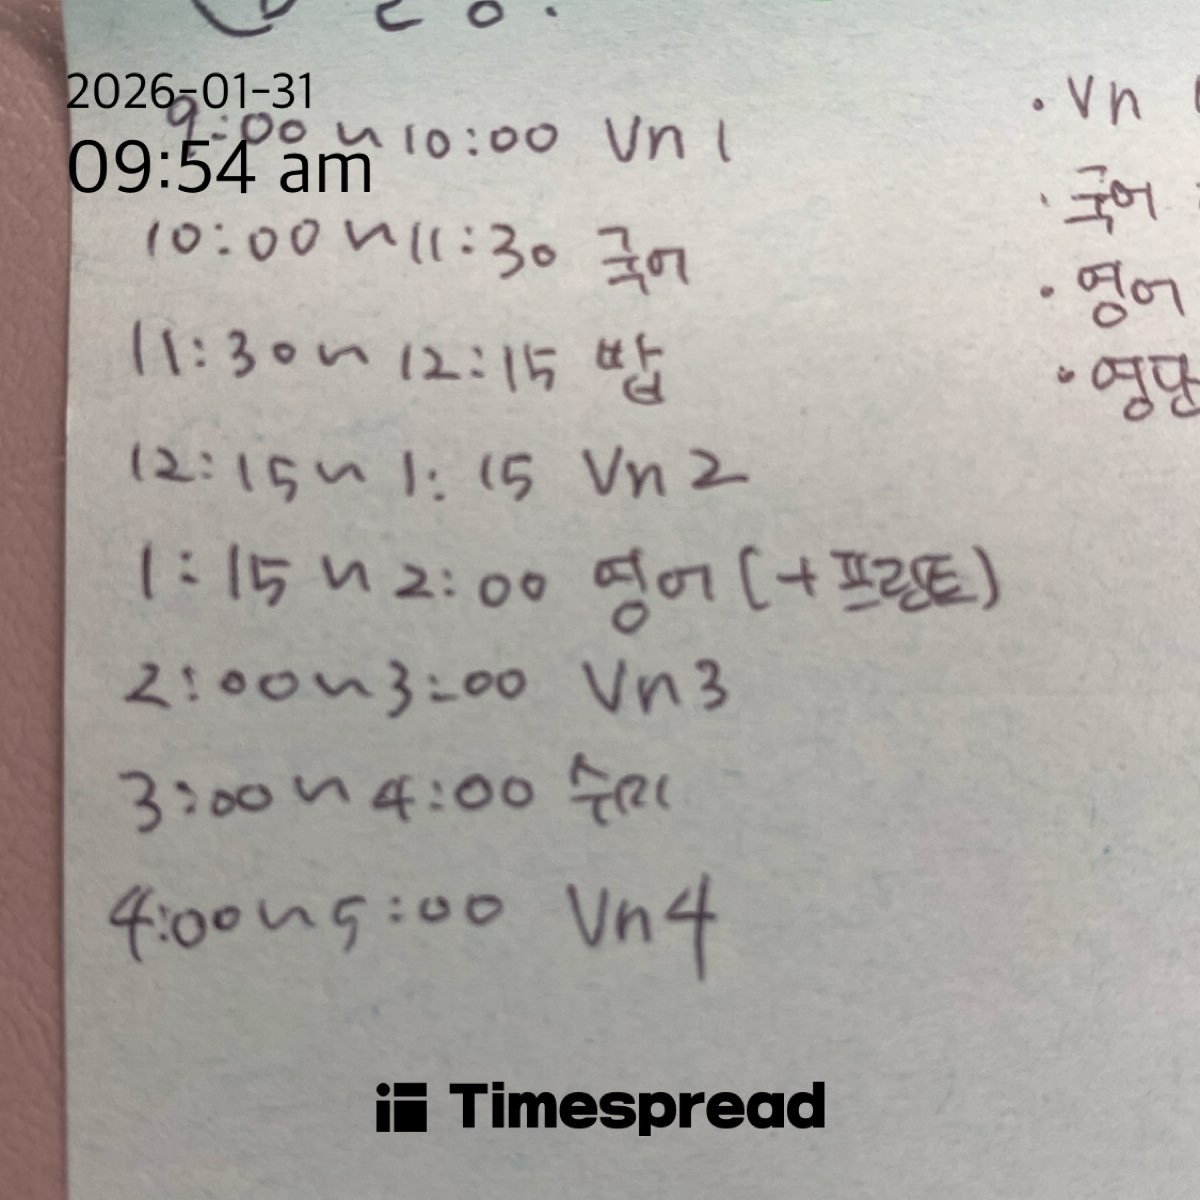 2026-01-31
09:54 am
9:00~10:00 Vn 1
10:00~11:30 국어
11:30~12:15 밥
12:15~1:15 Vn 2
1:15~2:00 영어 (+프랑토)
2:00~3:00 Vn 3
3:00~4:00 수학
4:00~5:00 Vn 4
· Vn
· 국어
· 영어
· 영단
Timespread